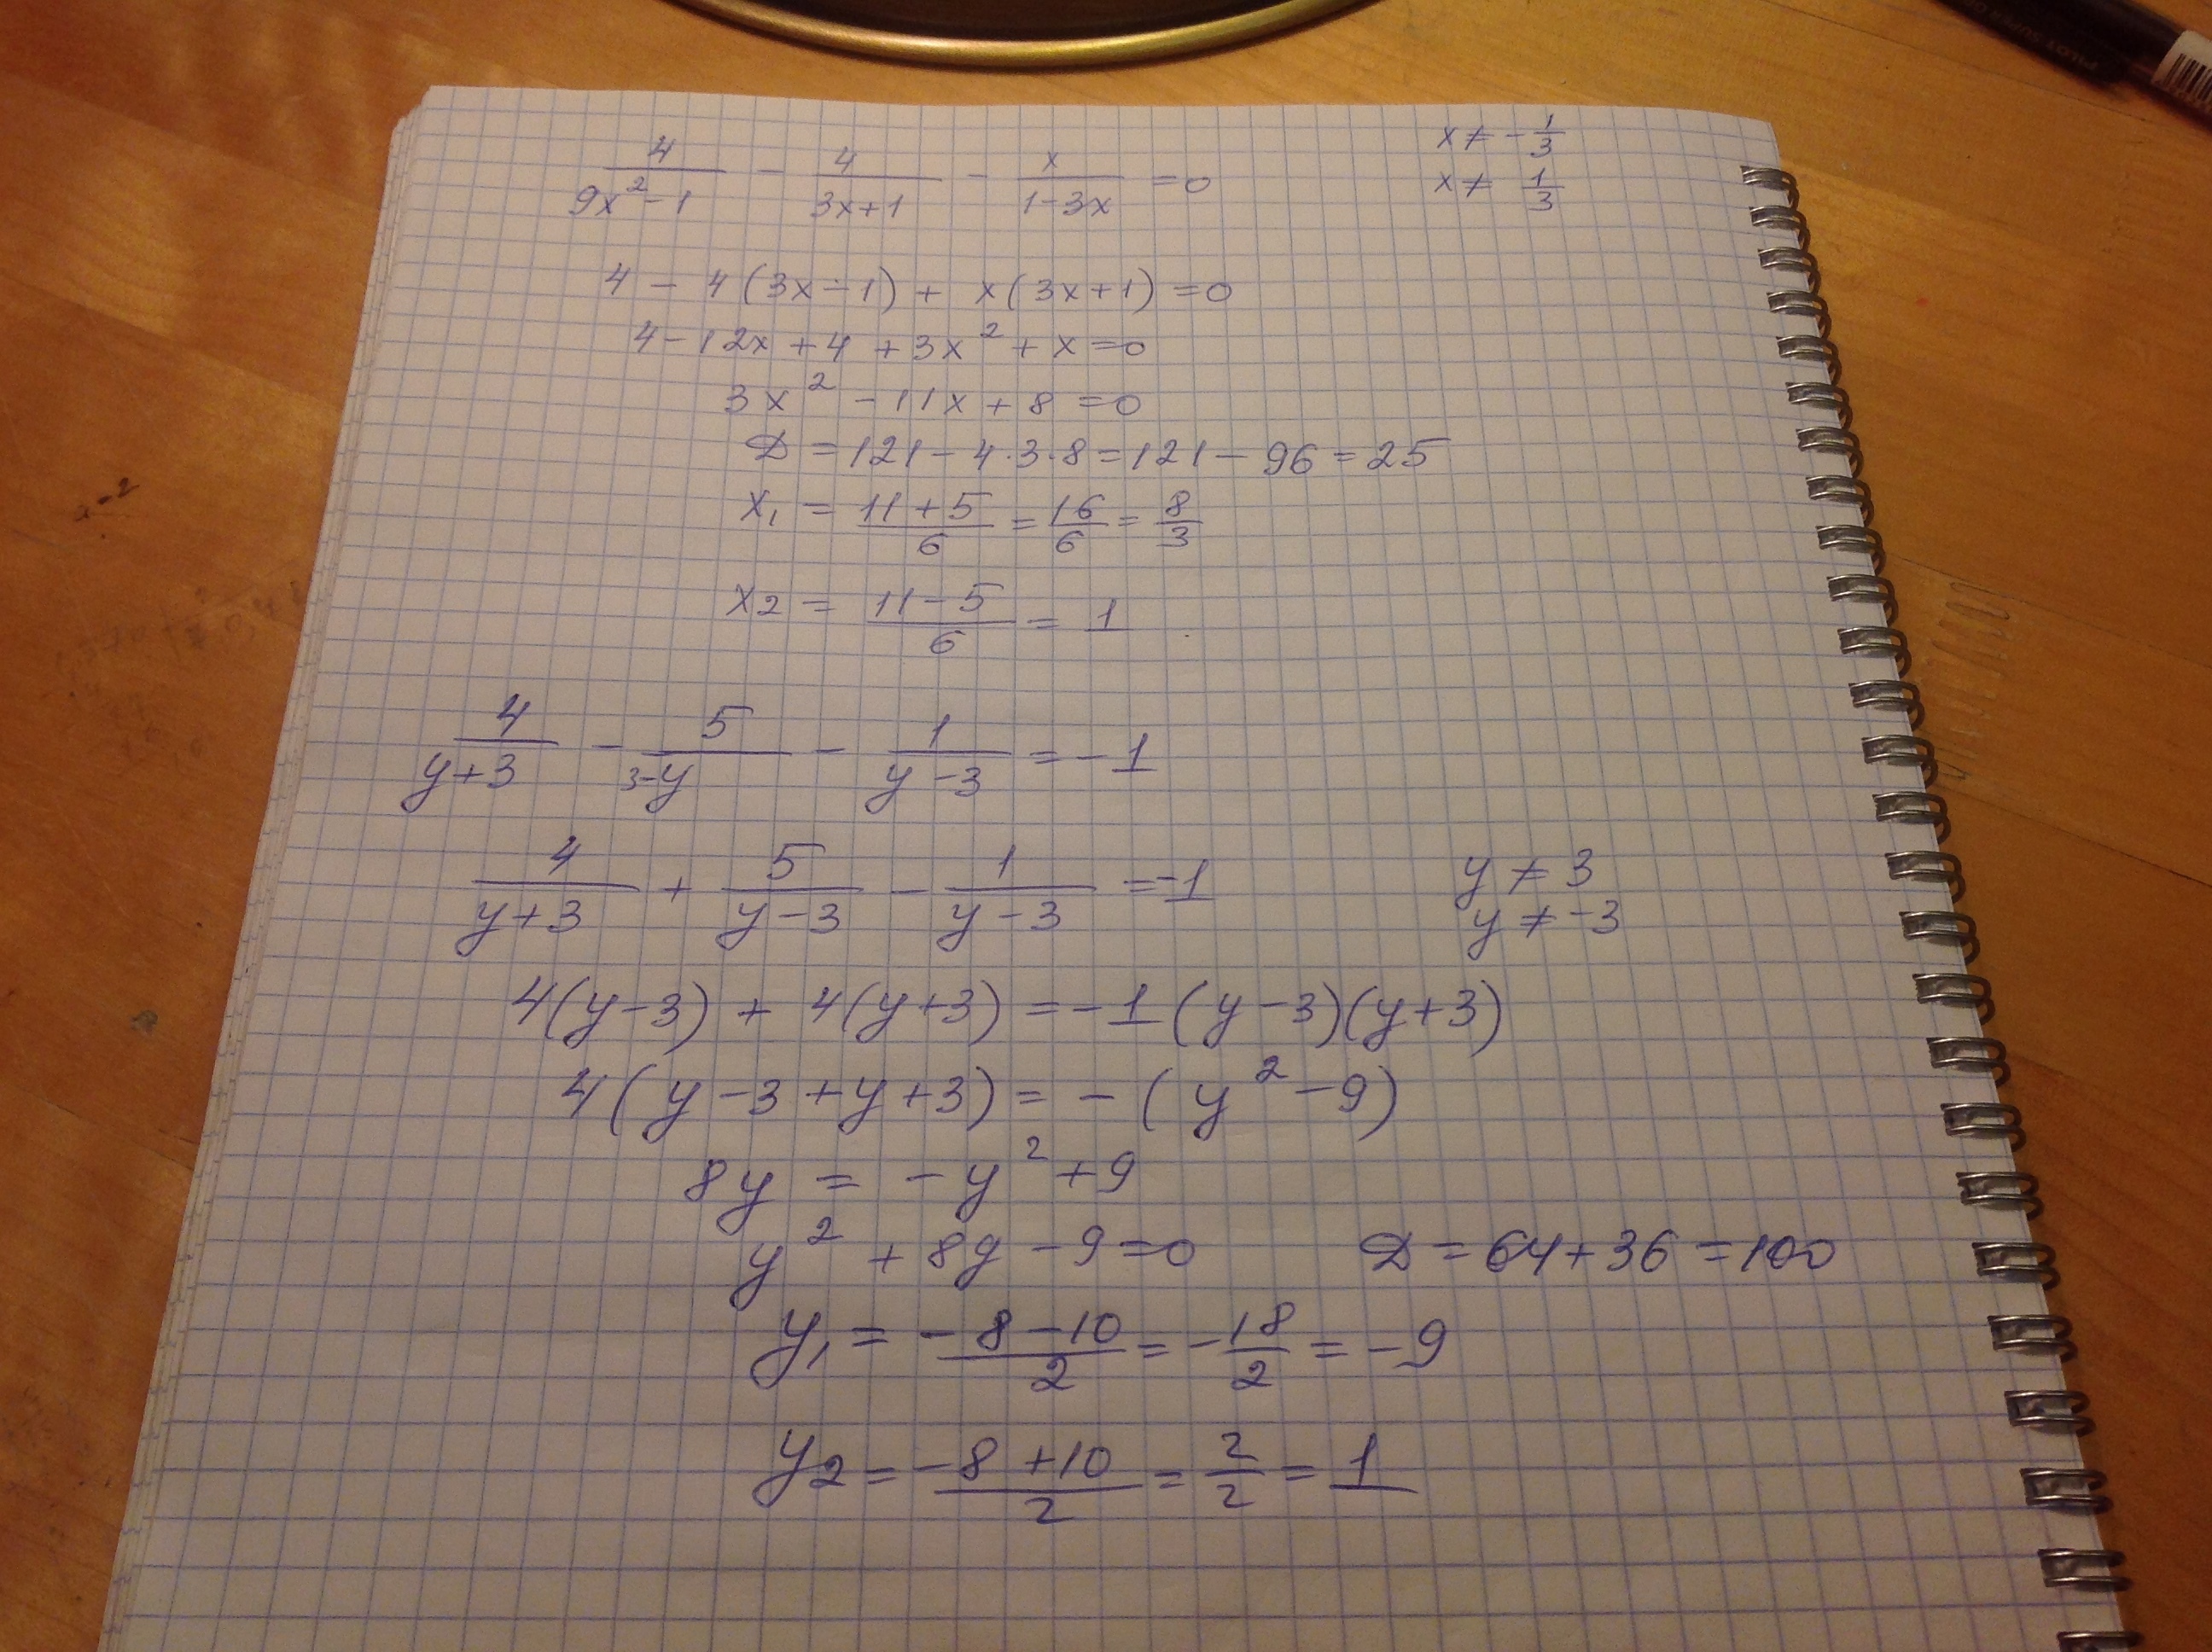 4/(9x²-1) - 4/(3x+1) - x/(1-3x) = 0
x ≠ -1/3
x ≠ 1/3
4 - 4(3x-1) + x(3x+1) = 0
4-12x+4+3x²+x=0
3x² - 11x + 8 = 0
D = 121 - 4·3·8 = 121 - 96 = 25
x₁ = (11+5)/6 = 16/6 = 8/3
x₂ = (11-5)/6 = 1
4/(y+3) - 5/(3-y) - 1/(y-3) = -1
4/(y+3) + 5/(y-3) - 1/(y-3) = -1
y ≠ 3
y ≠ -3
4(y-3) + 4(y+3) = -1(y-3)(y+3)
4(y-3+y+3) = -(y²-9)
8y = -y²+9
y² + 8y - 9 = 0
D = 64+36 = 100
y₁ = (-8-10)/2 = -18/2 = -9
y₂ = (-8+10)/2 = 2/2 = 1
x-2